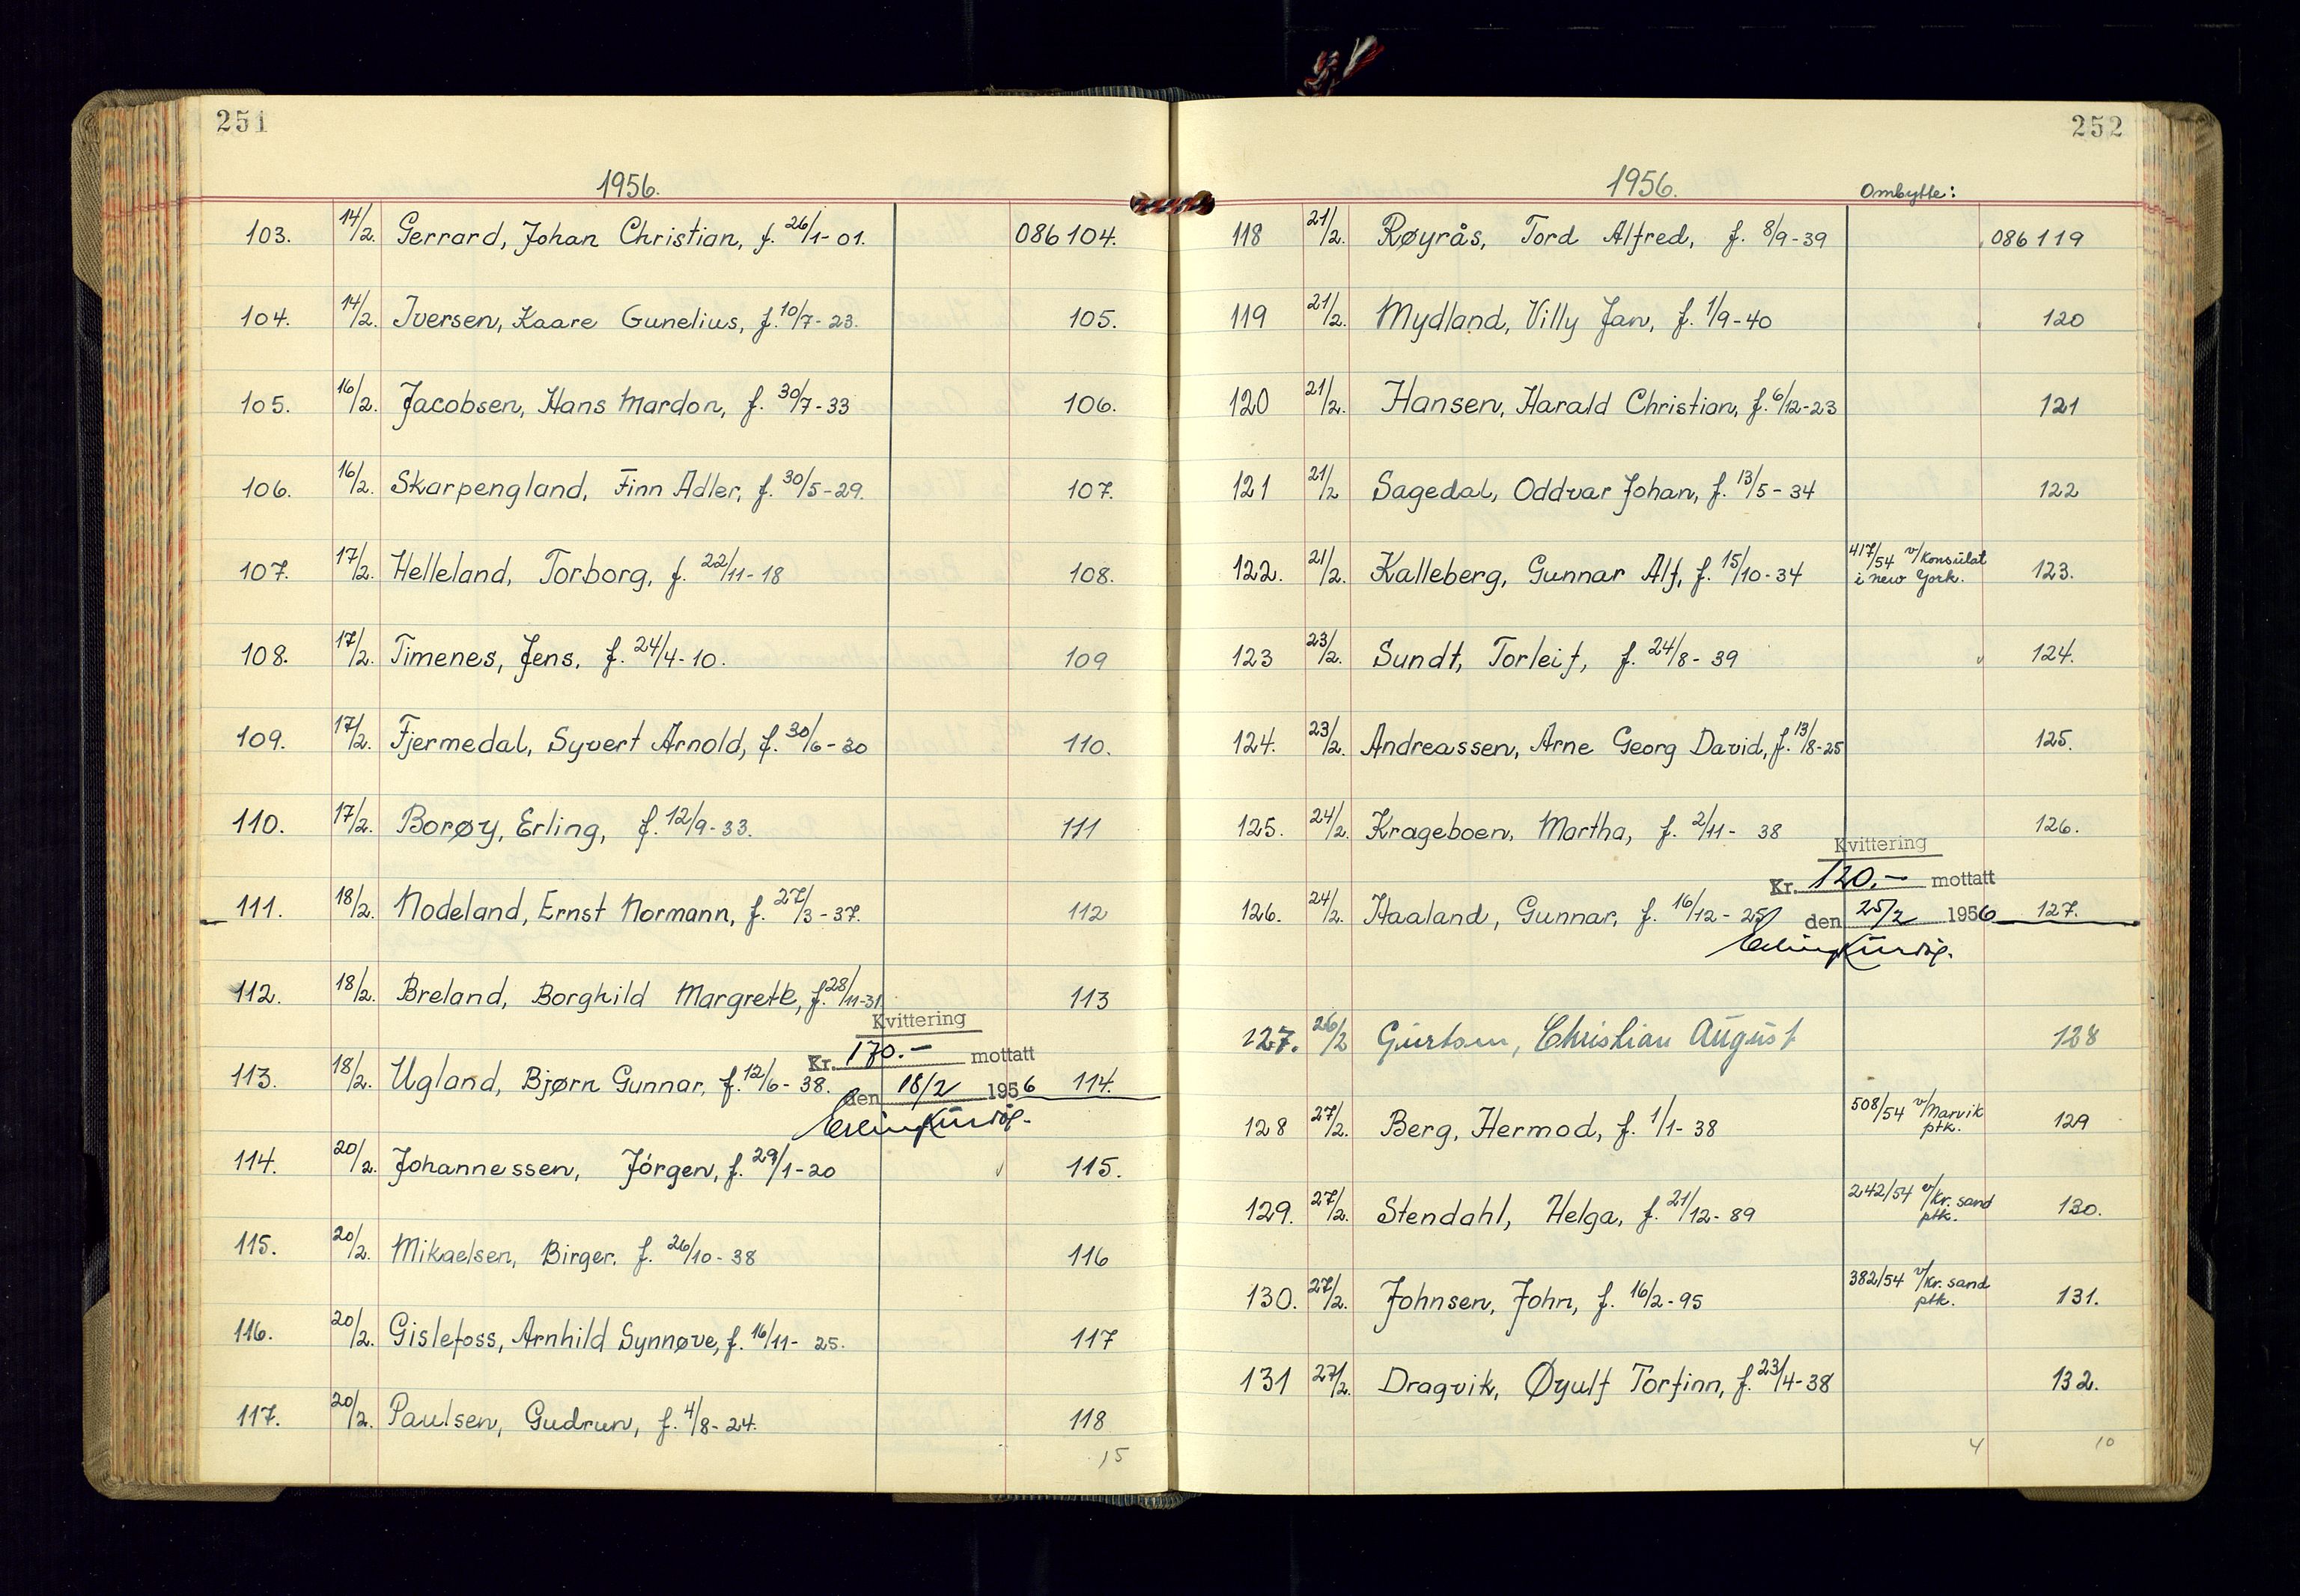 251
1956.
103. 14/2. Gerrard, Johan Christian, f. 26/1-01. 086104.
104. 14/2. Iversen, Kaare Gunelius, f. 10/7-23. 105.
105. 16/2. Jacobsen, Hans Mardon, f. 30/7-33 106.
106. 16/2. Skarpengland, Finn Adler, f. 30/5-29. 107.
107. 17/2. Helleland, Torborg, f. 22/11-18 108.
108. 17/2. Timenes, Jens, f. 24/4-10. 109
109. 17/2. Fjermedal, Syvert Arnold, f. 30/6-30 110.
110. 17/2. Borøy, Erling, f. 12/9-33. 111
111. 18/2. Nodeland, Ernst Normann, f. 27/3-37. 112
112. 18/2. Breland, Borghild Margrete, f. 28/11-31 113
Kvittering
Kr. 170.- mottatt
113. 18/2. Ugland, Bjørn Gunnar, f. 12/6-38. 114.
den 18/2 1956
114. 20/2. Johannessen, Jörgen, f. 29/1-20 115.
115. 20/2. Mikaelsen, Birger, f. 26/10-38 116
116. 20/2. Gislefoss, Arnhild Synnøve, f. 16/11-25. 117
117. 20/2. Paulsen, Gudrun, f. 4/8-24. 118
15
252
1956. Ombytte:
118 21/2. Røyrås, Tord Alfred, f. 8/9-39 086119
119 21/2. Mydland, Villy Jan, f. 1/9-40 120
120 21/2. Hansen, Harald Christian, f. 6/12-23 121
121 21/2 Sagedal, Oddvar Johan, f. 13/5-34 122
122. 21/2. Kalleberg, Gunnar Alf, f. 15/10-34 417/54 v/Konsulat i New York. 123.
123 23/2. Sundt, Torleif, f. 24/8-39 124.
124. 23/2. Andreassen, Arne Georg David, f. 13/8-25 125.
125. 24/2. Krageboen, Martha, f. 2/11-38 126.
Kvittering
Kr. 120.- mottatt
126. 24/2. Haaland, Gunnar, f. 16/12-25 127.
den 25/2 1956
127. 26/2 Christian August 128
128 27/2. Berg, Hermod, f. 1/1-38 508/54 v/Narvik ptk. 129
129. 27/2. Stendahl, Helga, f. 21/12-89 242/54 v/Kr.sand ptk. 130.
130. 27/2. Johnsen, John, f. 16/2-95 382/54 v/Kr.sand ptk. 131.
131 27/2. Dragvik, Øyulf Torfinn, f. 23/4-38 132.
4 10